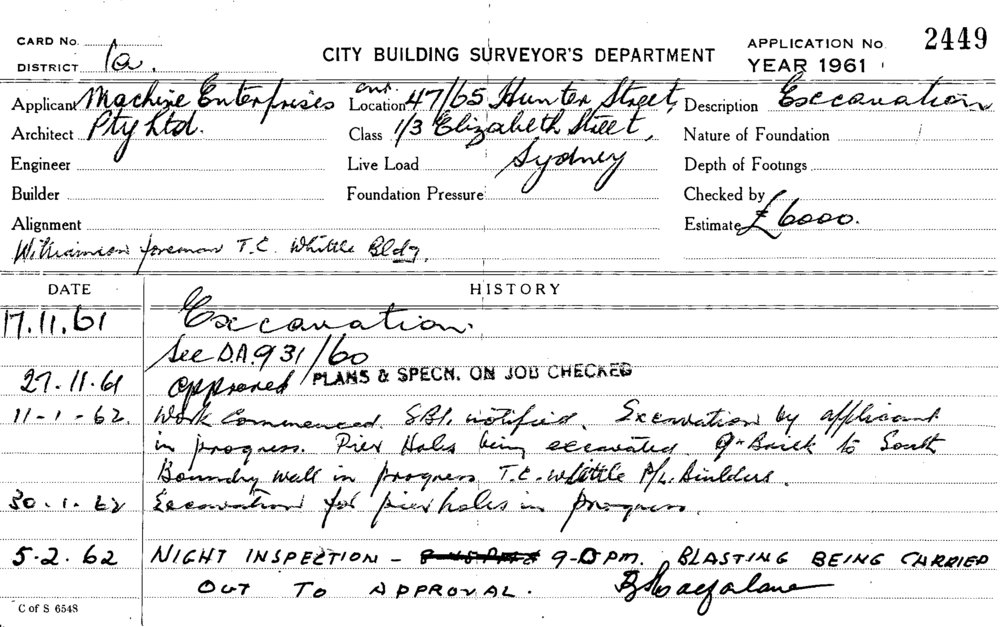 CARD No.
DISTRICT 1a.
CITY BUILDING SURVEYOR'S DEPARTMENT
APPLICATION No. 2449
YEAR 1961
Applicant Machine Enterprises
Location cnr. 47/65 Hunter Street,
Description Excavation
Architect Pty Ltd.
Class 1/3 Elizabeth Street,
Nature of Foundation
Engineer
Live Load Sydney
Depth of Footings
Builder
Foundation Pressure
Checked by
Alignment
Estimate £6000.
Williamson foreman T.C. Whittle Bldg.
DATE HISTORY
17.11.61 Excavation.
See D.A. 931/60
27.11.61 approved / PLANS & SPECN. ON JOB CHECKED
11-1-62. Work Commenced. notified. Excavation by applicant
in progress. Pier Holes being excavated 9" Brick to South
Boundry wall in progress T.C. Whittle P/L. Builders.
30.1.62 Excavation for pier holes in progress.
5.2.62 NIGHT INSPECTION - 9-0 PM. BLASTING BEING CARRIED
OUT TO APPROVAL. Macfarlane
C of S 6548